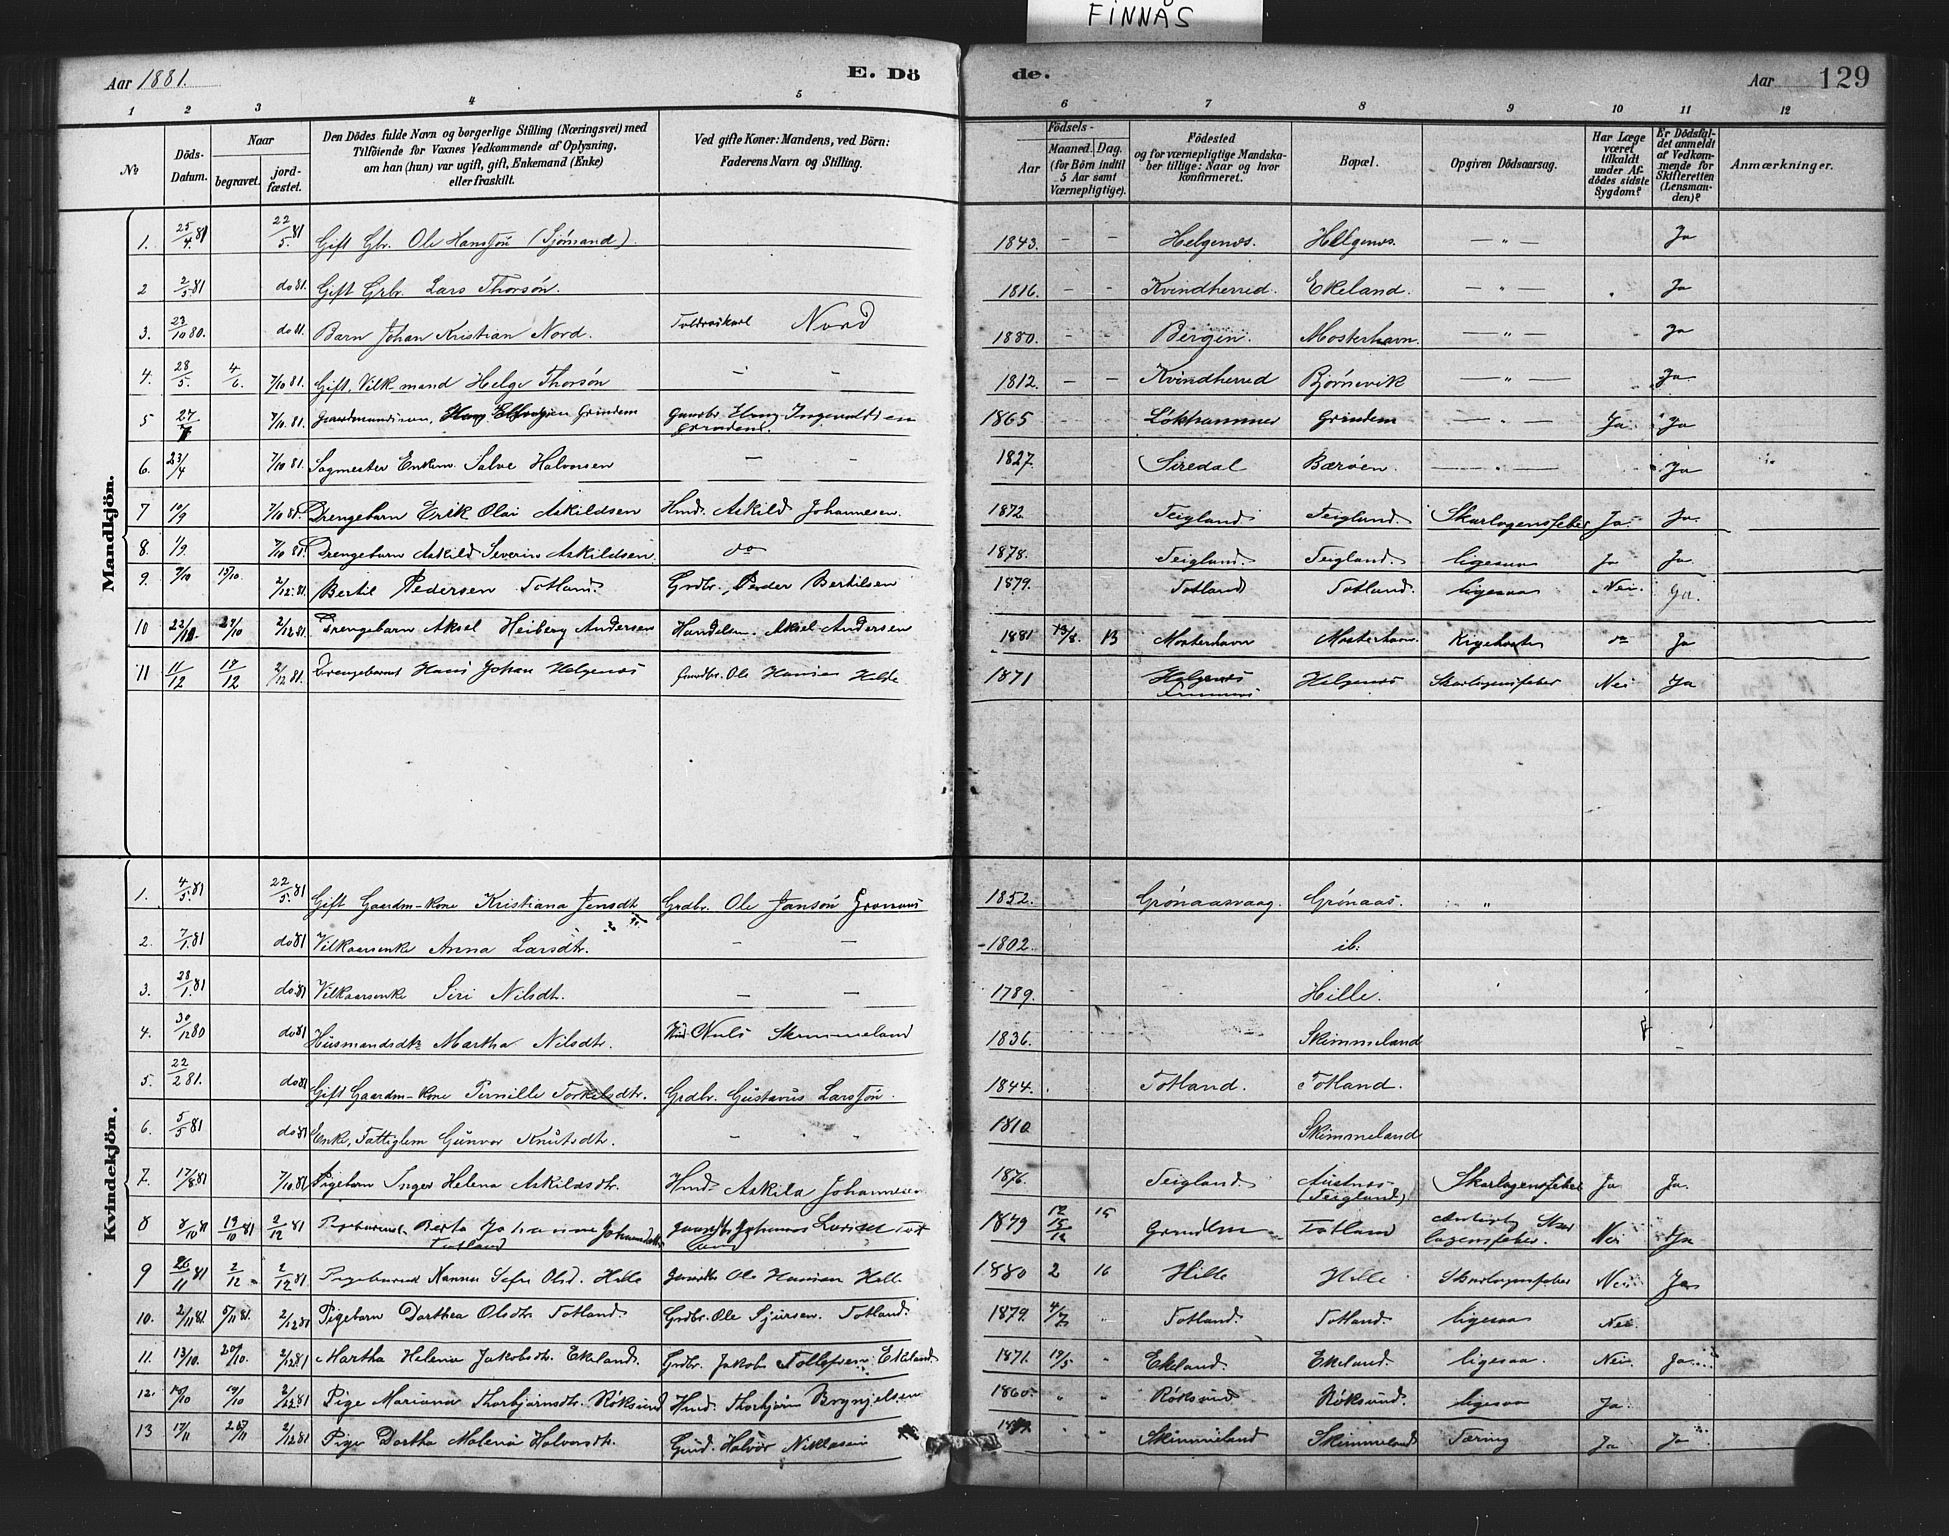 FINNÅS
Aar 1881. E. Dö de. Aar 129
1 2 3 4 5 6 7 8 9 10 11 12
No Döds-Datum. Naar begravet. jord-fæstet. Den Dödes fulde Navn og borgerlige Stilling (Næringsvei) med Tilföiende for Voxnes Vedkommende af Oplysning, om han (hun) var ugift, gift, Enkemand (Enke) eller fraskilt. Ved gifte Koner: Mandens, ved Börn: Faderens Navn og Stilling. Födsels- Aar Maaned. Dag. (for Börn indtil 5 Aar samt Værnepligtige). Födested og for værnepligtige Mandskaber tillige: Naar og hvor konfirmeret. Bopæl. Opgiven Dödsaarsag. Har Læge været tilkaldt under Afdödes sidste Sygdom? Er Dödsfaldet anmeldt af Vedkommende for Skifteretten (Lensmanden)? Anmærkninger.
Mandkjön.
1. 25/4 81 22/5 81 Gift Gbr. Ole Hansson (Sjömand). 1843. – – Helgenæs. Helgenæs. — „ — Ja
2 2/5 81 do 81. Gift Grbr. Lars Thorsön. 1816. – – Kvindherred. Ekeland. — „ — Ja
3. 23/10 80. do 81. Barn Johan Kristian Nord. Nord 1880. – – Bergen. Mosterhavn. — „ — Ja
4. 28/5. 4/6. 7/10 81. Gift, Vilk-mand Helge Thorsön – – 1812. – – Kvindherred Bjørnevik — „ — Ja
5 27/7 7/10. 81. Grindem 1865 Grindem Ja Ja
6. 23/4 7/10 81. Sagmester Enkem. Salve Halvorsen – – 1827. Siredal Bærøen. — „ — Ja
7 10/9 7/10 81. Drengebarn Erik Olai Askildsen Hmd. Askild Johannesen. 1872. Teigland Teigland. Skarlagensfeber Ja. Ja.
8. 1/9. 7/10 81. Drengebarn Askild Severin Askildsen. do 1878. Teigland. Teigland. ligesaa Ja Ja.
9. 9/10 15/10. 2/12. 81. Bertil Pedersen Totland. Grdbr. Peder Bertilsen 1879. Totland Totland. ligesaa Nei. Ja.
10 27/10 2/12 81. Drengebarn Aksel Heiberg Andersen Handelsm. Aksel Andersen 1881 13 Mosterhavn Mosterhavn. Kighoste Ja
11 11/12 17/12 2/12 81. Drengebarnet Hans Johan Helgenæs Ole Hansen 1871 Helgenæs Helgenæs Skarlagensfeber Nei Ja
Kvindekjön.
1. 4/5 81 22/5 81 Gift Gaardm-kone Kristiana Jensdtr. Grdbr. Ole Jansön Grønaas 1852. Grønaasvaag. Grønaas. „
2. 7/1 81 do 81 Vilkaarsenke Anna Larsdtr. – – 1802. ib:
3. 28/1 81 do 81 Vilkaarsenke Siri Nilsdtr. – – 1789. Hille.
4. 30/12 80 do 81 Husmandsdtr. Martha Nilsdtr. Nils Skimmeland 1836. Skimmeland
5. 22/2 81. do 81 Gift Gaardm-kone Pernille Torkelsdtr. Grdbr. Gustavus Larssön. 1844. Totland. Totland.
6. 5/5 81 do 81 Enke, Fattiglem Gunvor Knutsdtr. – – 1810 Skimmeland
7. 17/8 81 7/10 81 Pigebarn Inger Helena Askildsdtr. Hmd. Askild Johannesen 1876. Teigland (Teigland) Skarlagensfeber Ja Ja.
8 8/10 81 19/10 81 2/12 81 Berta Johanne Johannesdtr Totland 1879 15 Grindem Totland Skarlagensfeber. Nei Ja
9 26/11 81 2/12 2/12 81 Pigebarnet Nanna Sofie Olsd. Hille Ole Hansen Hille 1880 2 16 Hille Hille Skarlagensfeber Nei Ja
10. 2/11 81. 5/11 81. 2/12 81 Pigebarn Dorthea Olsdtr. Totland. Grdbr. Ole Sjursen Totland. 1879. 4/7 „ Totland. Totland. ligesaa Nei.
11. 13/10. 20/10. 2/12 81 Martha Helena Jakobsdtr. Ekeland. Grdbr. Jakob Tollefsen Ekeland 1871. 19/5 „ Ekeland. Ekeland. ligesaa. Nei. Ja.
12. 10/10 19/10 2/12 81 Pige Mariana Thorbjørnsdtr. Røksund Hmd. Thorbjørn Brynjelsen 1860. „ „ Røksund Røksund. ligesaa Ja.
13 17/11 25/11 2/12 81 Pige Dortha Malena Halvorsdtr. Halvor Niklasen „ „ Skimmeland Skimmeland Tæring Ja Ja